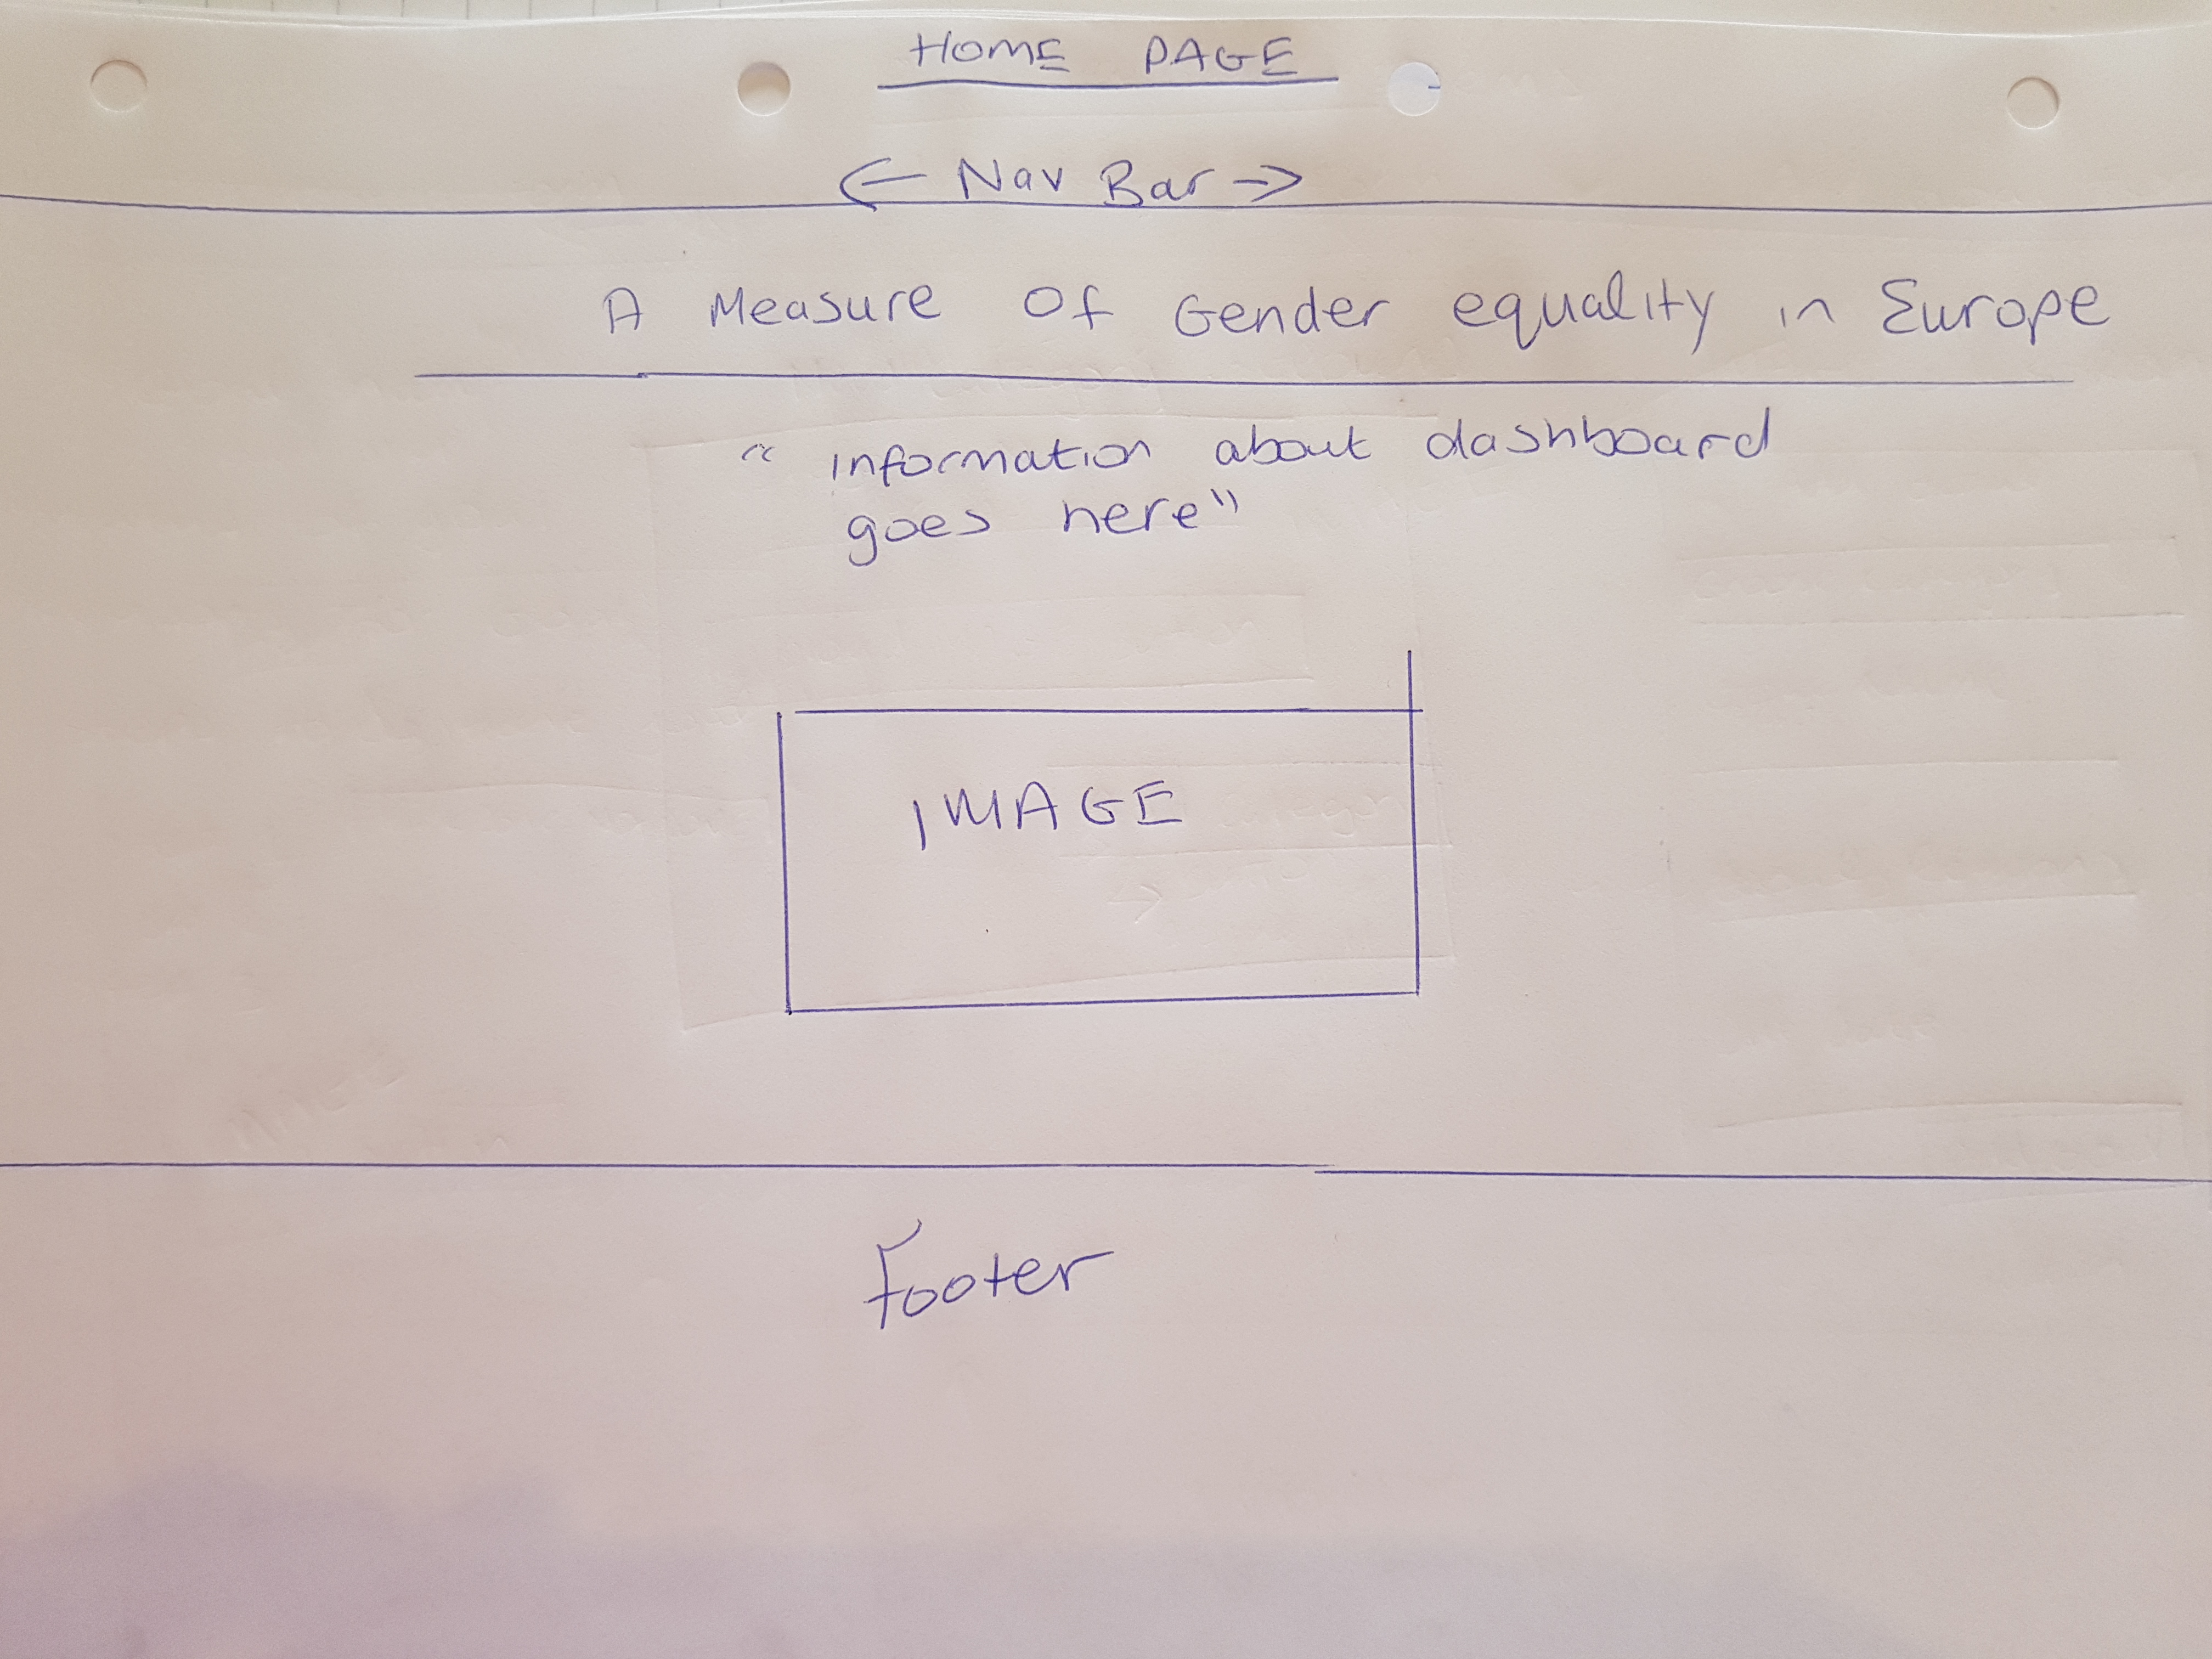 HOME PAGE
← Nav Bar →
A Measure Of Gender equality in Europe
" information about dashboard
goes here"
IMAGE
Footer